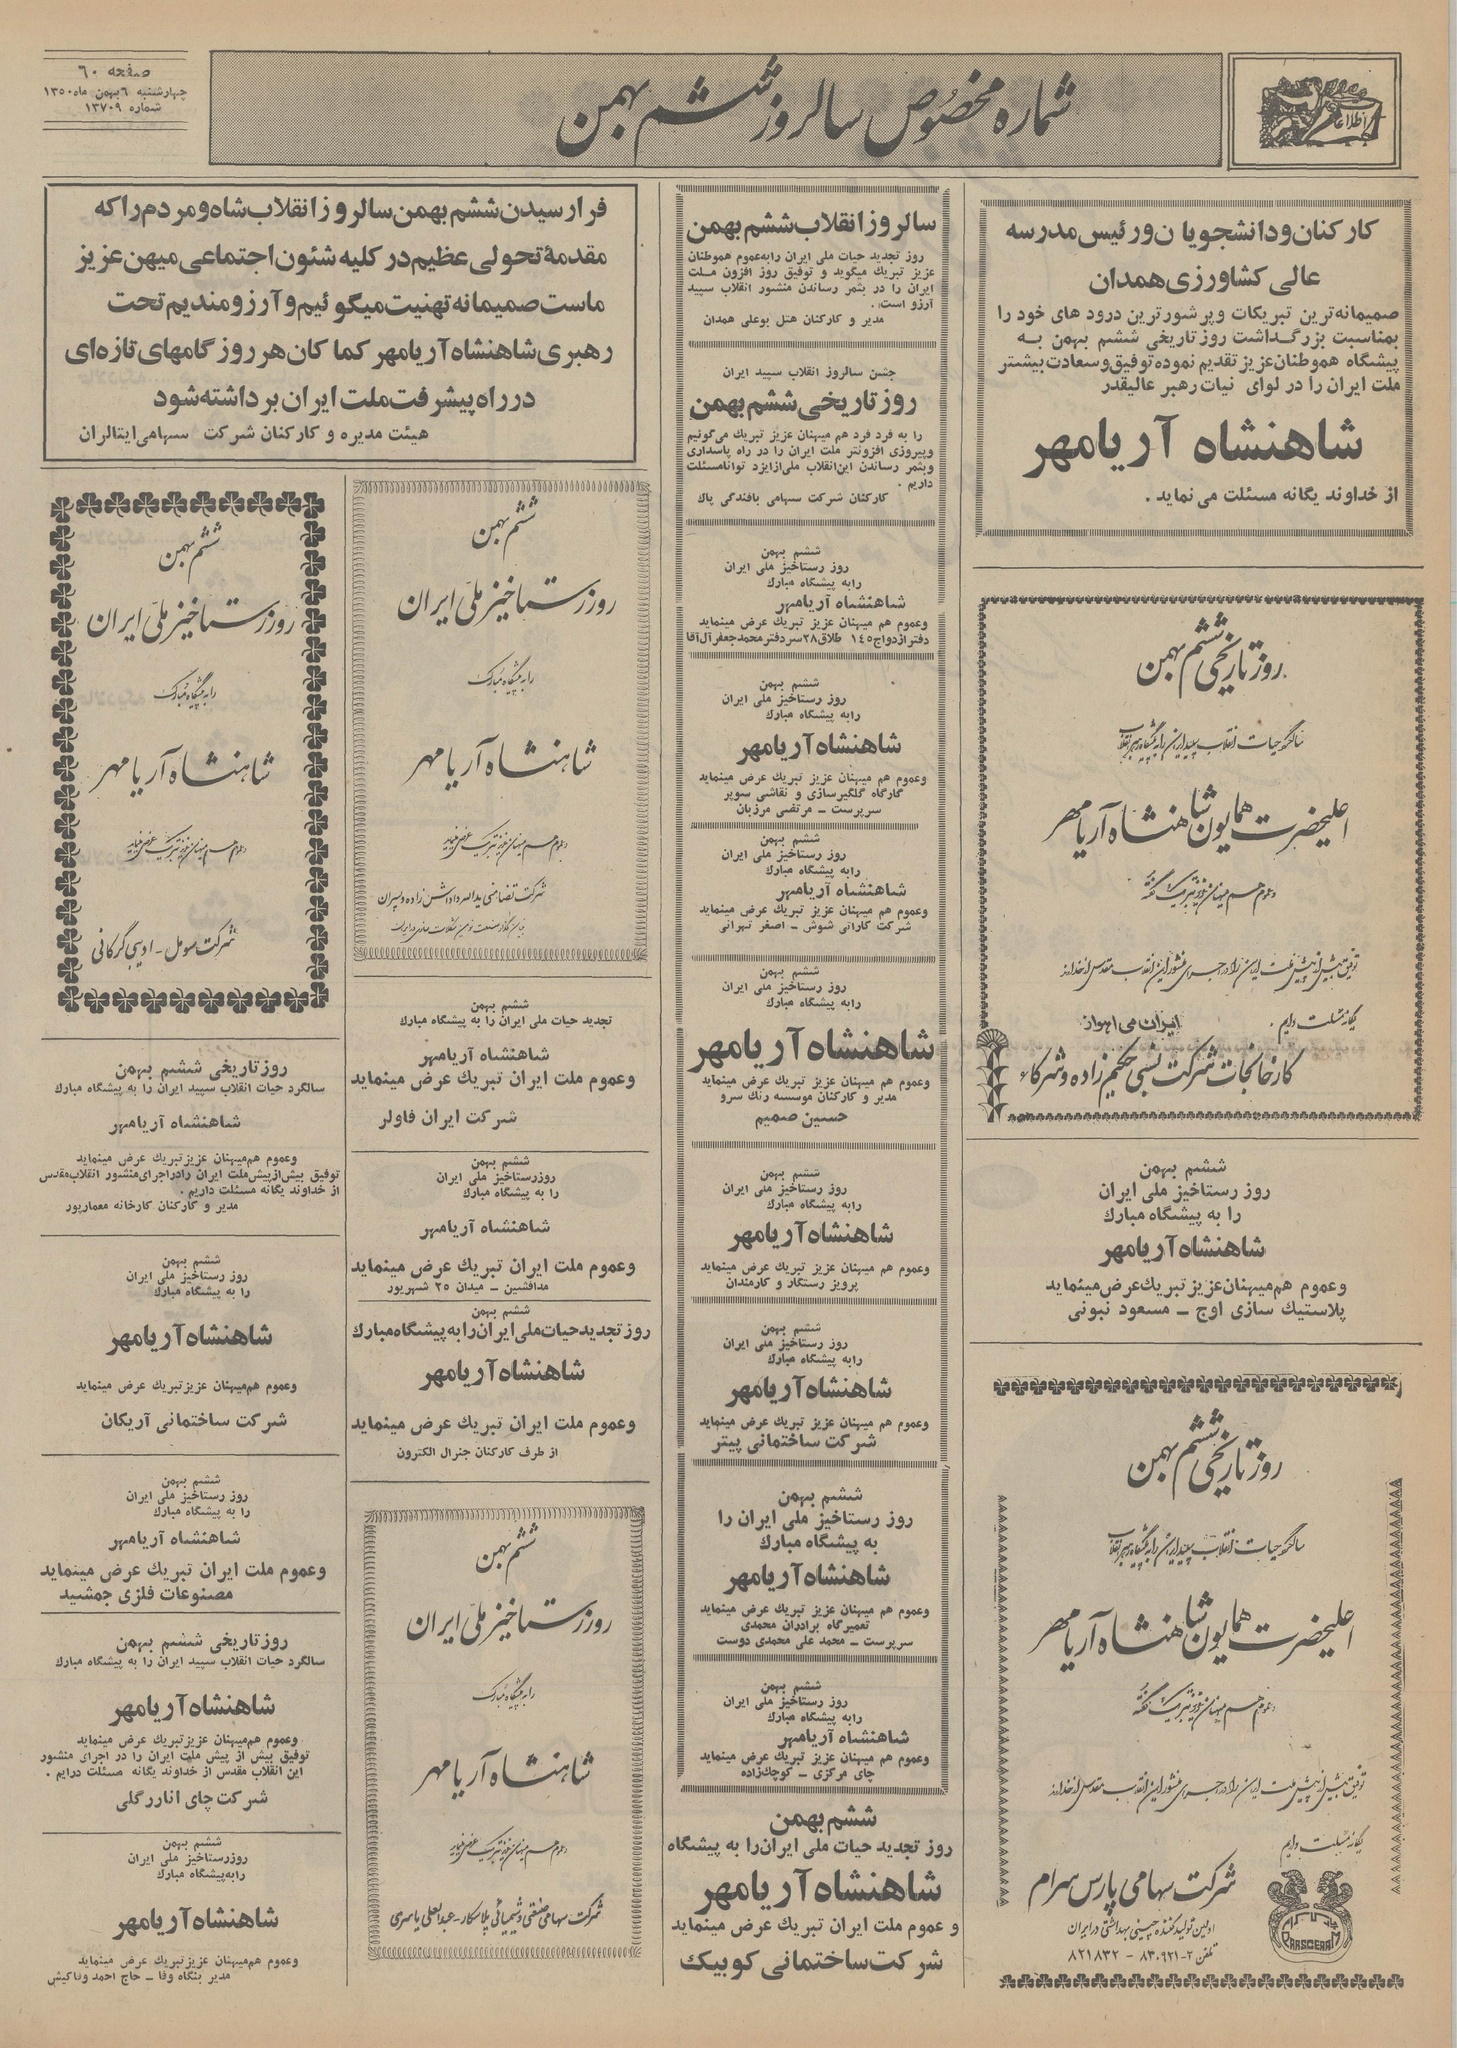 صفحه ۶۰
چهارشنبه ۶ بهمن ماه ۱۳۵۰
شماره ۱۳۷۰۹
شماره مخصوص سالروز ششم بهمن
اطلاعات
کارکنان و دانشجویان و رئیس مدرسه
عالی کشاورزی همدان
صمیمانه‌ترین تبریکات و پرشورترین درود های خود را
بمناسبت بزرگداشت روز تاریخی ششم بهمن به
پیشگاه هموطنان عزیز تقدیم نموده توفیق و سعادت بیشتر
ملت ایران را در لوای نیات رهبر عالیقدر
شاهنشاه آریامهر
از خداوند یگانه مسئلت می نماید .
روز تاریخی ششم بهمن
سالگرد حیات انقلاب سپید ایران را به پیشگاه رهبر انقلاب
اعلیحضرت همایون شاهنشاه آریامهر
و عموم هم میهنان عزیز تبریک گفته
توفیق بیش از پیش ملت ایران را در اجرای منشور این انقلاب مقدس از خداوند
یگانه مسئلت داریم .
ایران می اهواز
کارخانجات شرکت نسبی حکیم زاده و شرکاء
ششم بهمن
روز رستاخیز ملی ایران
را به پیشگاه مبارک
شاهنشاه آریامهر
و عموم هم‌میهنان عزیز تبریک عرض مینماید
پلاستیک سازی اوج ـ مسعود نبوئی
روز تاریخی ششم بهمن
سالگرد حیات انقلاب سپید ایران را به پیشگاه رهبر انقلاب
اعلیحضرت همایون شاهنشاه آریامهر
و عموم هم میهنان عزیز تبریک گفته
توفیق بیش از پیش ملت ایران را در اجرای منشور این انقلاب مقدس از خداوند
یگانه مسئلت داریم
شرکت سهامی پارس سرام
اولین تولید کننده چینی بهداشتی در ایران
تلفن ۲-۸۳۰۹۲۱ - ۸۲۱۸۳۲
PARSCERAM
سالروز انقلاب ششم بهمن
روز تجدید حیات ملی ایران را به عموم هموطنان
عزیز تبریک میگوید و توفیق روز افزون ملت
ایران را در بثمر رساندن منشور انقلاب سپید
آرزو است .
مدیر و کارکنان هتل بوعلی همدان
جشن سالروز انقلاب سپید ایران
روز تاریخی ششم بهمن
را به فرد فرد هم میهنان عزیز تبریک می‌گوئیم
و پیروزی افزونتر ملت ایران را در راه پاسداری
و بثمر رساندن این انقلاب ملی از ایزد توانا مسئلت
داریم .
کارکنان شرکت سهامی بافندگی پاک
ششم بهمن
روز رستاخیز ملی ایران
را به پیشگاه مبارک
شاهنشاه آریامهر
و عموم هم میهنان عزیز تبریک عرض مینماید
دفتر ازدواج ۱۴۵ طلاق ۲۸ سر دفتر محمد جعفر آل آقا
ششم بهمن
روز رستاخیز ملی ایران
را به پیشگاه مبارک
شاهنشاه آریامهر
و عموم هم میهنان عزیز تبریک عرض مینماید
گارگاه گلگیرسازی و نقاشی سوپر
سرپرست ـ مرتضی مرزبان
ششم بهمن
روز رستاخیز ملی ایران
را به پیشگاه مبارک
شاهنشاه آریامهر
و عموم هم میهنان عزیز تبریک عرض مینماید
شرکت کارائی شوش ـ اصغر تهرانی
ششم بهمن
روز رستاخیز ملی ایران
را به پیشگاه مبارک
شاهنشاه آریامهر
و عموم هم میهنان عزیز تبریک عرض مینماید
مدیر و کارکنان موسسه رنک سرو
حسین صمیم
ششم بهمن
روز رستاخیز ملی ایران
را به پیشگاه مبارک
شاهنشاه آریامهر
و عموم هم میهنان عزیز تبریک عرض مینماید
پرویز رستگار و کارمندان
ششم بهمن
روز رستاخیز ملی ایران
را به پیشگاه مبارک
شاهنشاه آریامهر
و عموم هم میهنان عزیز تبریک عرض مینماید
شرکت ساختمانی پیتر
ششم بهمن
روز رستاخیز ملی ایران را
به پیشگاه مبارک
شاهنشاه آریامهر
و عموم هم میهنان عزیز تبریک عرض مینماید
تعمیرگاه برادران محمدی
سرپرست ـ محمد علی محمدی دوست
ششم بهمن
روز رستاخیز ملی ایران
را به پیشگاه مبارک
شاهنشاه آریامهر
و عموم هم میهنان عزیز تبریک عرض مینماید
چای مرکزی ـ کوچک‌زاده
ششم بهمن
روز تجدید حیات ملی ایران را به پیشگاه
شاهنشاه آریامهر
و عموم ملت ایران تبریک عرض مینماید
شرکت ساختمانی کوبیک
فرا رسیدن ششم بهمن سالروز انقلاب شاه و مردم را که
مقدمهٔ تحولی عظیم در کلیه شئون اجتماعی میهن عزیز
ماست صمیمانه تهنیت میگوئیم و آرزومندیم تحت
رهبری شاهنشاه آریامهر کماکان هر روز گامهای تازه‌ای
در راه پیشرفت ملت ایران برداشته شود
هیئت مدیره و کارکنان شرکت سهامی ایتالران
ششم بهمن
روز رستاخیز ملی ایران
را به پیشگاه مبارک
شاهنشاه آریامهر
و عموم هم میهنان عزیز تبریک عرض مینماید
شرکت تضامنی یداله داداش زاده و پسران
ششم بهمن
تجدید حیات ملی ایران را به پیشگاه مبارک
شاهنشاه آریامهر
و عموم ملت ایران تبریک عرض مینماید
شرکت ایران فاولر
ششم بهمن
روز رستاخیز ملی ایران
را به پیشگاه مبارک
شاهنشاه آریامهر
و عموم ملت ایران تبریک عرض مینماید
مدافشین ـ میدان ۲۵ شهریور
ششم بهمن
روز تجدید حیات ملی ایران را به پیشگاه مبارک
شاهنشاه آریامهر
و عموم ملت ایران تبریک عرض مینماید
از طرف کارکنان جنرال الکترون
ششم بهمن
روز رستاخیز ملی ایران
را به پیشگاه مبارک
شاهنشاه آریامهر
و عموم هم میهنان عزیز تبریک عرض مینماید
شرکت سهامی صنعتی و شیمیائی پلاسکار - عبدالعلی یاصری
ششم بهمن
روز رستاخیز ملی ایران
را به پیشگاه مبارک
شاهنشاه آریامهر
و عموم هم میهنان عزیز تبریک عرض مینماید
شرکت سومل - ادیبی گرکانی
روز تاریخی ششم بهمن
سالگرد حیات انقلاب سپید ایران را به پیشگاه مبارک
شاهنشاه آریامهر
و عموم هم‌میهنان عزیز تبریک عرض مینماید
توفیق بیش از پیش ملت ایران را در اجرای منشور انقلاب مقدس
از خداوند یگانه مسئلت داریم .
مدیر و کارکنان کارخانه معمارپور
ششم بهمن
روز رستاخیز ملی ایران
را به پیشگاه مبارک
شاهنشاه آریامهر
و عموم هم‌میهنان عزیز تبریک عرض مینماید
شرکت ساختمانی آریکان
ششم بهمن
روز رستاخیز ملی ایران
را به پیشگاه مبارک
شاهنشاه آریامهر
و عموم ملت ایران تبریک عرض مینماید
مصنوعات فلزی جمشید
روز تاریخی ششم بهمن
سالگرد حیات انقلاب سپید ایران را به پیشگاه مبارک
شاهنشاه آریامهر
و عموم هم‌میهنان عزیز تبریک عرض مینماید
توفیق بیش از پیش ملت ایران را در اجرای منشور
این انقلاب مقدس از خداوند یگانه مسئلت درایم .
شرکت چای انارگلی
ششم بهمن
روز رستاخیز ملی ایران
را به پیشگاه مبارک
شاهنشاه آریامهر
و عموم هم‌میهنان عزیز تبریک عرض مینماید
مدیر بنگاه وفا ـ حاج احمد وفاکیش